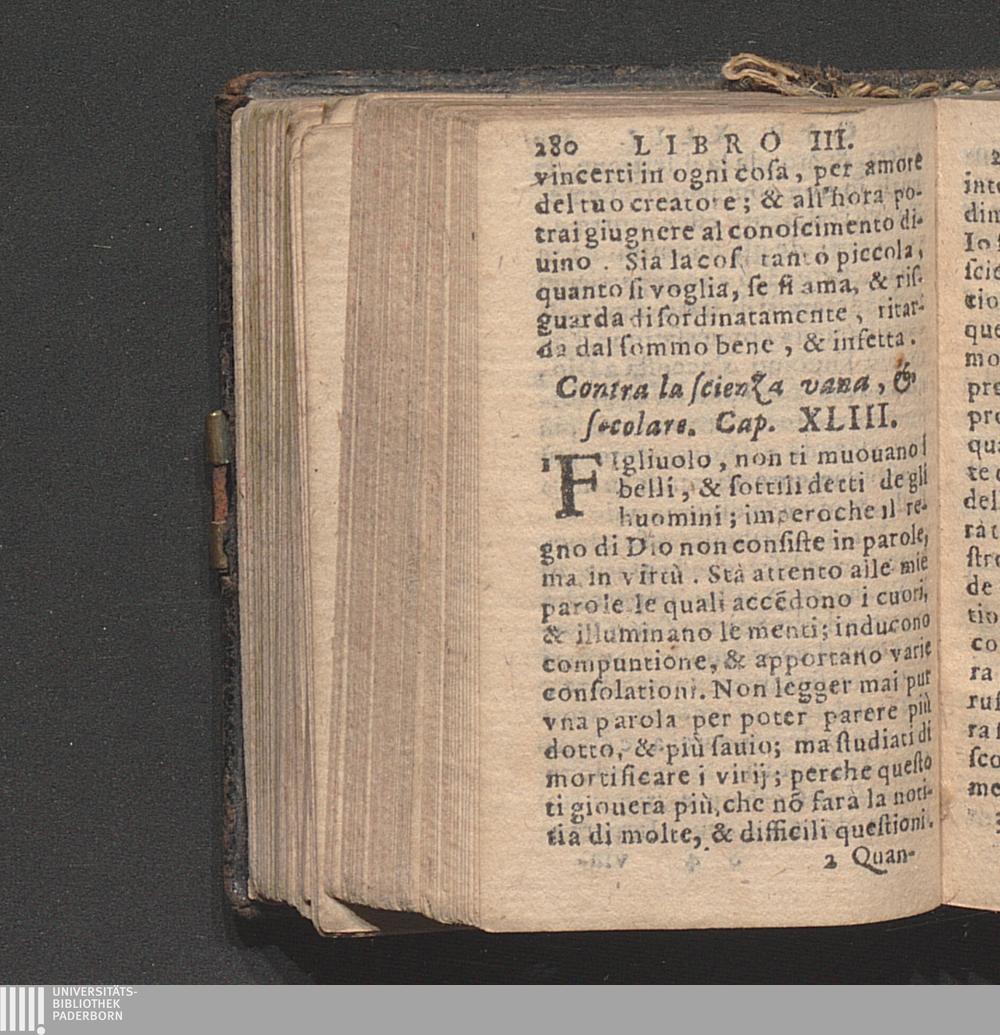 280 LIBRO III.
vincerti in ogni coſa, per amore
del tuo creatore; & all'hora po-
trai giugnere al conoſcimento di-
uino. Sia la coſ tanto piccola,
quanto ſi voglia, ſe ſi ama, & riſ-
guarda diſordinatamente, ritar-
da dal ſommo bene, & infetta.
Contra la ſcienza vana, &
ſecolare. Cap. XLIII.
1 FIgliuolo, non ti muouano i
belli, & ſottili detti degli
huomini; imperoche il re-
gno di Dio non conſiſte in parole,
ma in virtù. Stà attento alle mie
parole le quali accẽdono i cuori,
& illuminano le menti; inducono
compuntione, & apportano varie
conſolationi. Non legger mai pur
vna parola per poter parere più
dotto, & più ſauio; ma ſtudiati di
mortificare i vitij; perche queſto
ti giouerà più, che nõ farà la noti-
tia di molte, & difficili queſtioni.
2 Quan-
2
inte
dim
Io ſ
ſcie
tio
que
mo
pre
pro
qua
te
del
ra t
ſtro
de
tio
co
ra
ruſ
ra ſ
ſco
me
UNIVERSITÄTS-
BIBLIOTHEK
PADERBORN